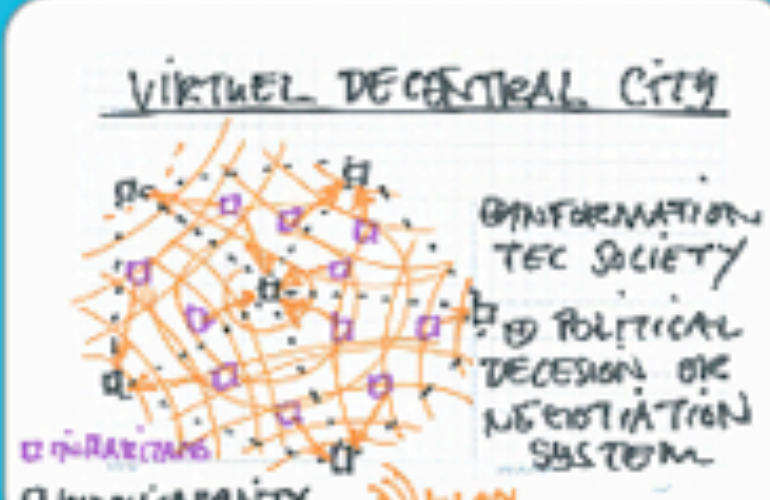 VIRTUEL DECENTRAL CITY
INFORMATION
TEC SOCIETY
POLITICAL
DECESION OR
NEGOTIATION
SYSTEM
WLAN